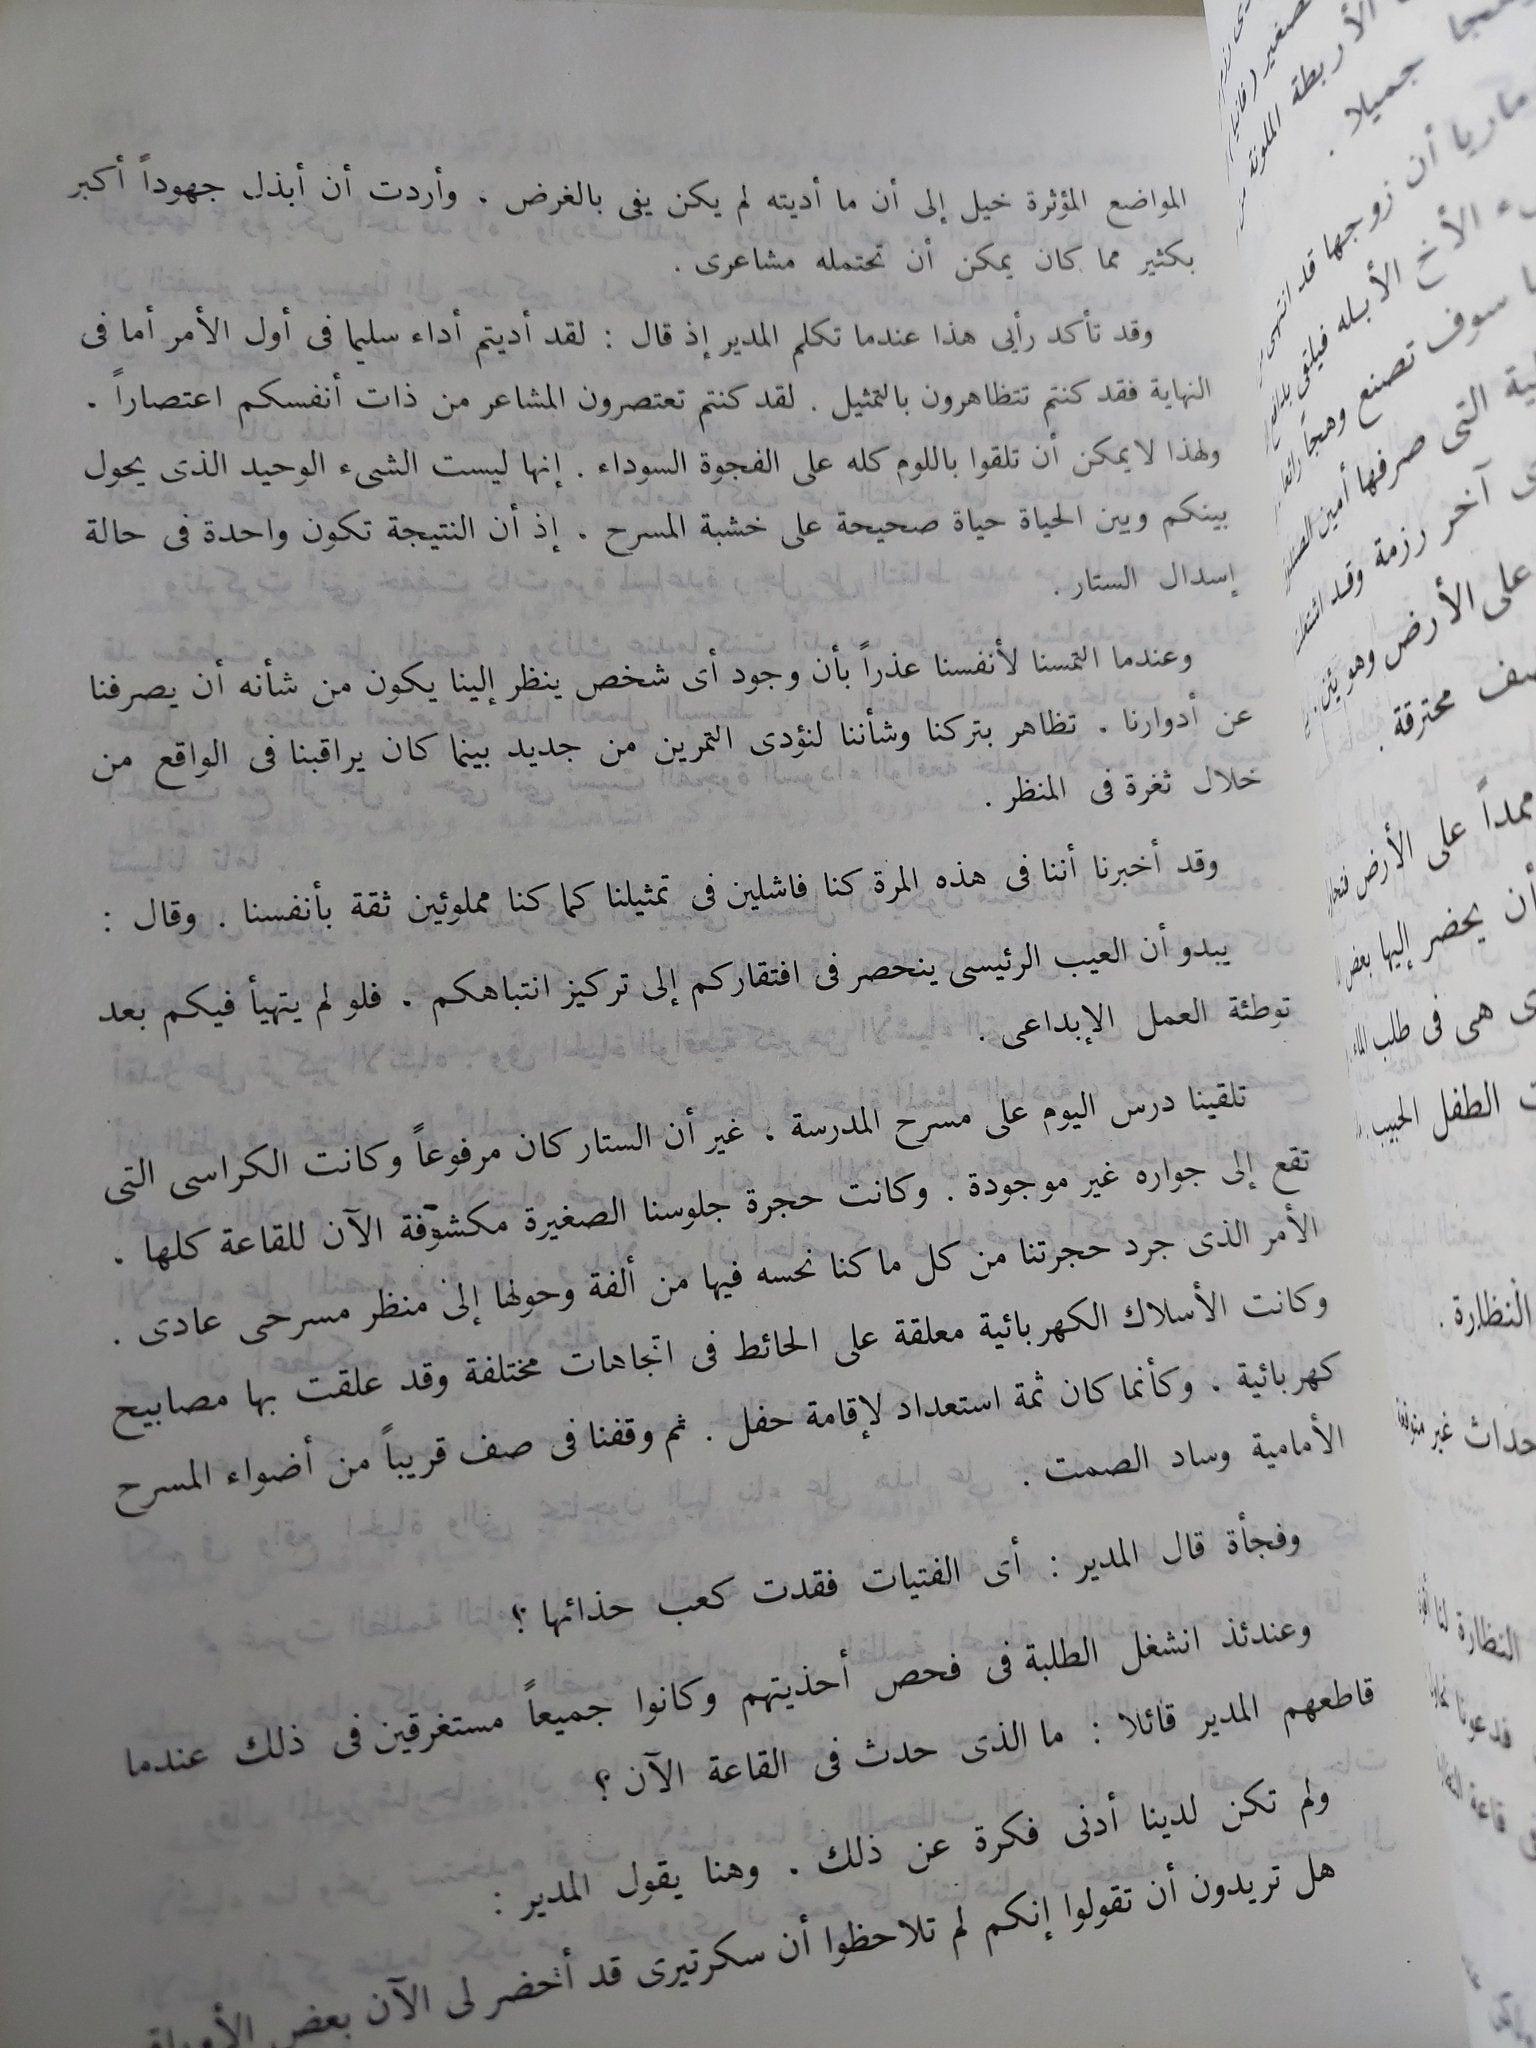 المواضع المؤثرة خيل إلى أن ما أديته لم يكن يفى بالغرض . وأردت أن أبذل جهوداً أكبر
بكثير مما كان يمكن أن تحتمله مشاعرى .
وقد تأكد رأيى هذا عندما تكلم المدير إذ قال : لقد أديتم أداء سليما فى أول الأمر أما فى
النهاية فقد كنتم تتظاهرون بالتمثيل . لقد كنتم تعتصرون المشاعر من ذات أنفسكم اعتصاراً .
ولهذا لايمكن أن تلقوا باللوم كله على الفجوة السوداء . إنها ليست الشىء الوحيد الذى يحول
بينكم وبين الحياة حياة صحيحة على خشبة المسرح . إذ أن النتيجة تكون واحدة فى حالة
إسدال الستار .
وعندما التمسنا لأنفسنا عذراً بأن وجود أى شخص ينظر إلينا يكون من شأنه أن يصرفنا
عن أدوارنا . تظاهر بتركنا وشأننا لنؤدى التمرين من جديد بينما كان يراقبنا فى الواقع من
خلال ثغرة فى المنظر .
وقد أخبرنا أننا فى هذه المرة كنا فاشلين فى تمثيلنا كما كنا مملوئين ثقة بأنفسنا . وقال :
يبدو أن العيب الرئيسى ينحصر فى افتقاركم إلى تركيز انتباهكم . فلو لم يتهيأ فيكم بعد
توطئة العمل الإبداعى .
تلقينا درس اليوم على مسرح المدرسة . غير أن الستار كان مرفوعاً وكانت الكراسى التى
تقع إلى جواره غير موجودة . وكانت حجرة جلوسنا الصغيرة مكشوفة الآن للقاعة كلها .
الأمر الذى جرد حجرتنا من كل ما كنا نحسه فيها من ألفة وحولها إلى منظر مسرحى عادى .
وكانت الأسلاك الكهربائية معلقة على الحائط فى اتجاهات مختلفة وقد علقت بها مصابيح
كهربائية . وكأنما كان ثمة استعداد لإقامة حفل . ثم وقفنا فى صف قريباً من أضواء المسرح
الأمامية وساد الصمت .
وفجأة قال المدير : أى الفتيات فقدت كعب حذائها ؟
وعندئذ انشغل الطلبة فى فحص أحذيتهم وكانوا جميعاً مستغرقين فى ذلك عندما
قاطعهم المدير قائلا : ما الذى حدث فى القاعة الآن ؟
ولم تكن لدينا أدنى فكرة عن ذلك . وهنا يقول المدير :
هل تريدون أن تقولوا إنكم لم تلاحظوا أن سكرتيرى قد أحضر لى الآن بعض الأوراق
الأربطة الملونة
جميلا .
ماريا أن زوجها قد انتهى
الأخ الأبله فيلقى
سوف تصنع وهجاً رائعا
التى صرفها أمين
آخر رزمة وقد اشتعلت
على الأرض وهو
محترقة .
ممدداً على الأرض
أن يحضر إليها بعض
هى فى طلب الماء
الطفل الحبيب .
النظارة .
غير متوقعة
النظارة لنا
قاعة